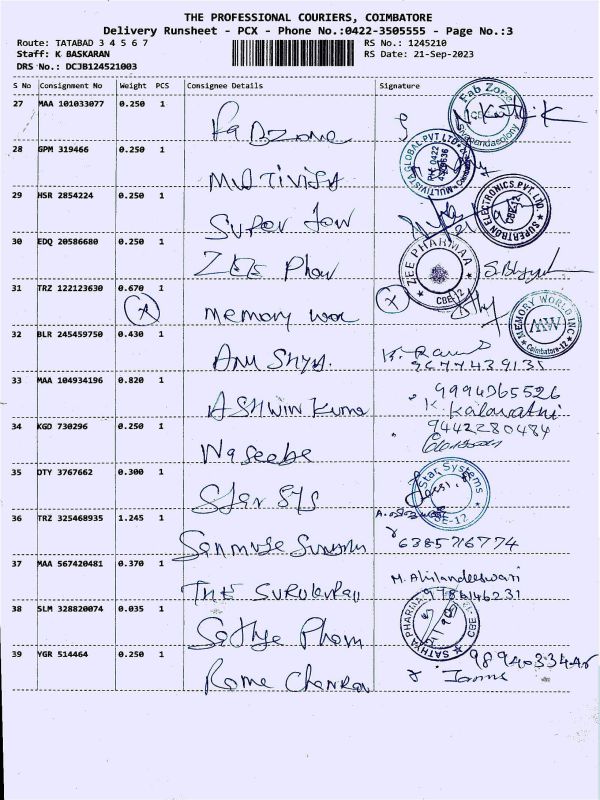 THE PROFESSIONAL COURIERS, COIMBATORE
Delivery Runsheet - PCX - Phone No.:0422-3505555 - Page No.:3
Route: TATABAD 3 4 5 6 7 RS No.: 1245210
Staff: K BASKARAN RS Date: 21-Sep-2023
DRS No.: DCJB124521003
S No Consignment No Weight PCS Consignee Details Signature
27 MAA 101033077 0.250 1 Fab Zone
Fabzone
28 GPM 319466 0.250 1 MULTIVISTA GLOBAL PVT LTD
Multivista
29 HSR 2854224 0.250 1 SUPERTRON ELECTRONICS PVT. LTD. CBE-12
Super
30 EDQ 20586680 0.250 1 ZEE PHARMAA CBE-12
ZEE Phar
31 TRZ 122123630 0.670 1
Memory wor MEMORY WORLD INC MW Coimbatore-12
32 BLR 245459750 0.430 1
Anu Shya. 9677439131
33 MAA 104934196 0.820 1 9994365526
Ashwin Kuma K. Kalavathi
34 KGD 730296 0.250 1 9442280484
Waseebe
35 DTY 3767662 0.300 1 Star Systems
Star Sys
36 TRZ 325468935 1.245 1
6385716774
37 MAA 567420481 0.370 1 M. Ahilandeeswari
THE 9786146231
38 SLM 328820074 0.035 1 SATHYA PHARMA CBE
Sathya Pharm
39 YGR 514464 0.250 1
Rama Chandran